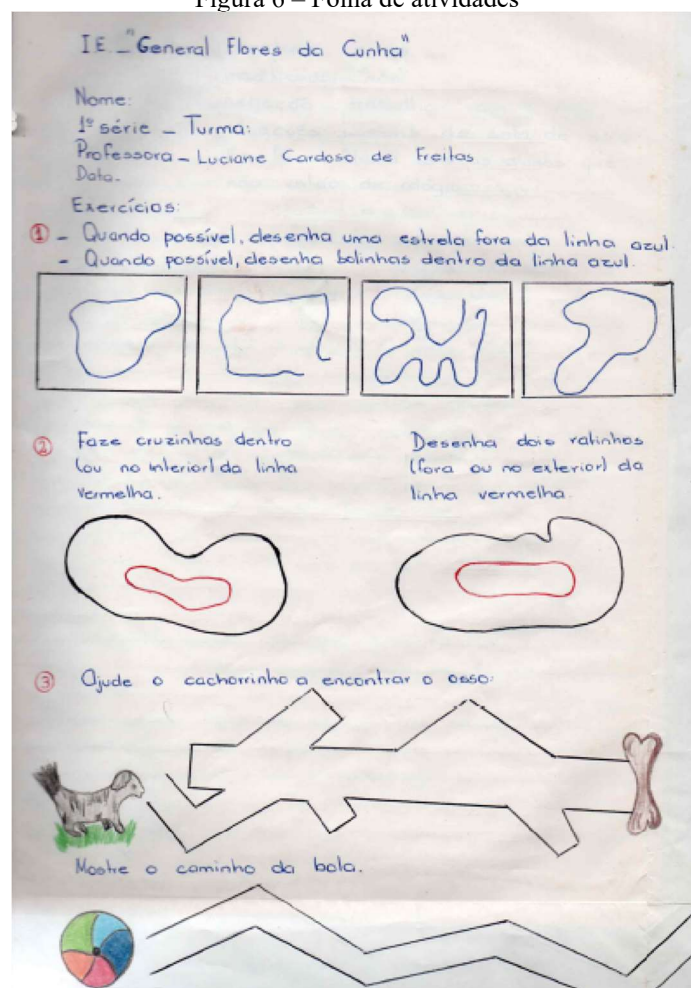 Figura 6 – Folha de atividades
IE - "General Flores da Cunha"
Nome:
1ª série - Turma:
Professora - Luciane Cardoso de Freitas
Data.
Exercícios:
① - Quando possível, desenha uma estrela fora da linha azul.
- Quando possível, desenha bolinhas dentro da linha azul.
② Faze cruzinhas dentro
(ou no interior) da linha
vermelha.
Desenha dois ratinhos
(fora ou no exterior) da
linha vermelha.
③ Ajude o cachorrinho a encontrar o osso:
Mostre o caminho da bola.